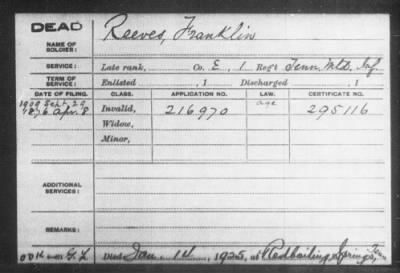 DEAD
NAME OF SOLDIER: Reeves, Franklin
SERVICE: Late rank, Co. E, 1 Reg't Tenn. Mtd. Inf.
TERM OF SERVICE: Enlisted , 1 Discharged , 1
DATE OF FILING. CLASS. APPLICATION NO. LAW. CERTIFICATE NO.
1909 Sept. 29 age
1876 Apr. 8 Invalid, 216970 295116
Widow,
Minor,
ADDITIONAL SERVICES:
REMARKS:
Died Jan. 14, 1925, at Redboiling Springs, Tenn